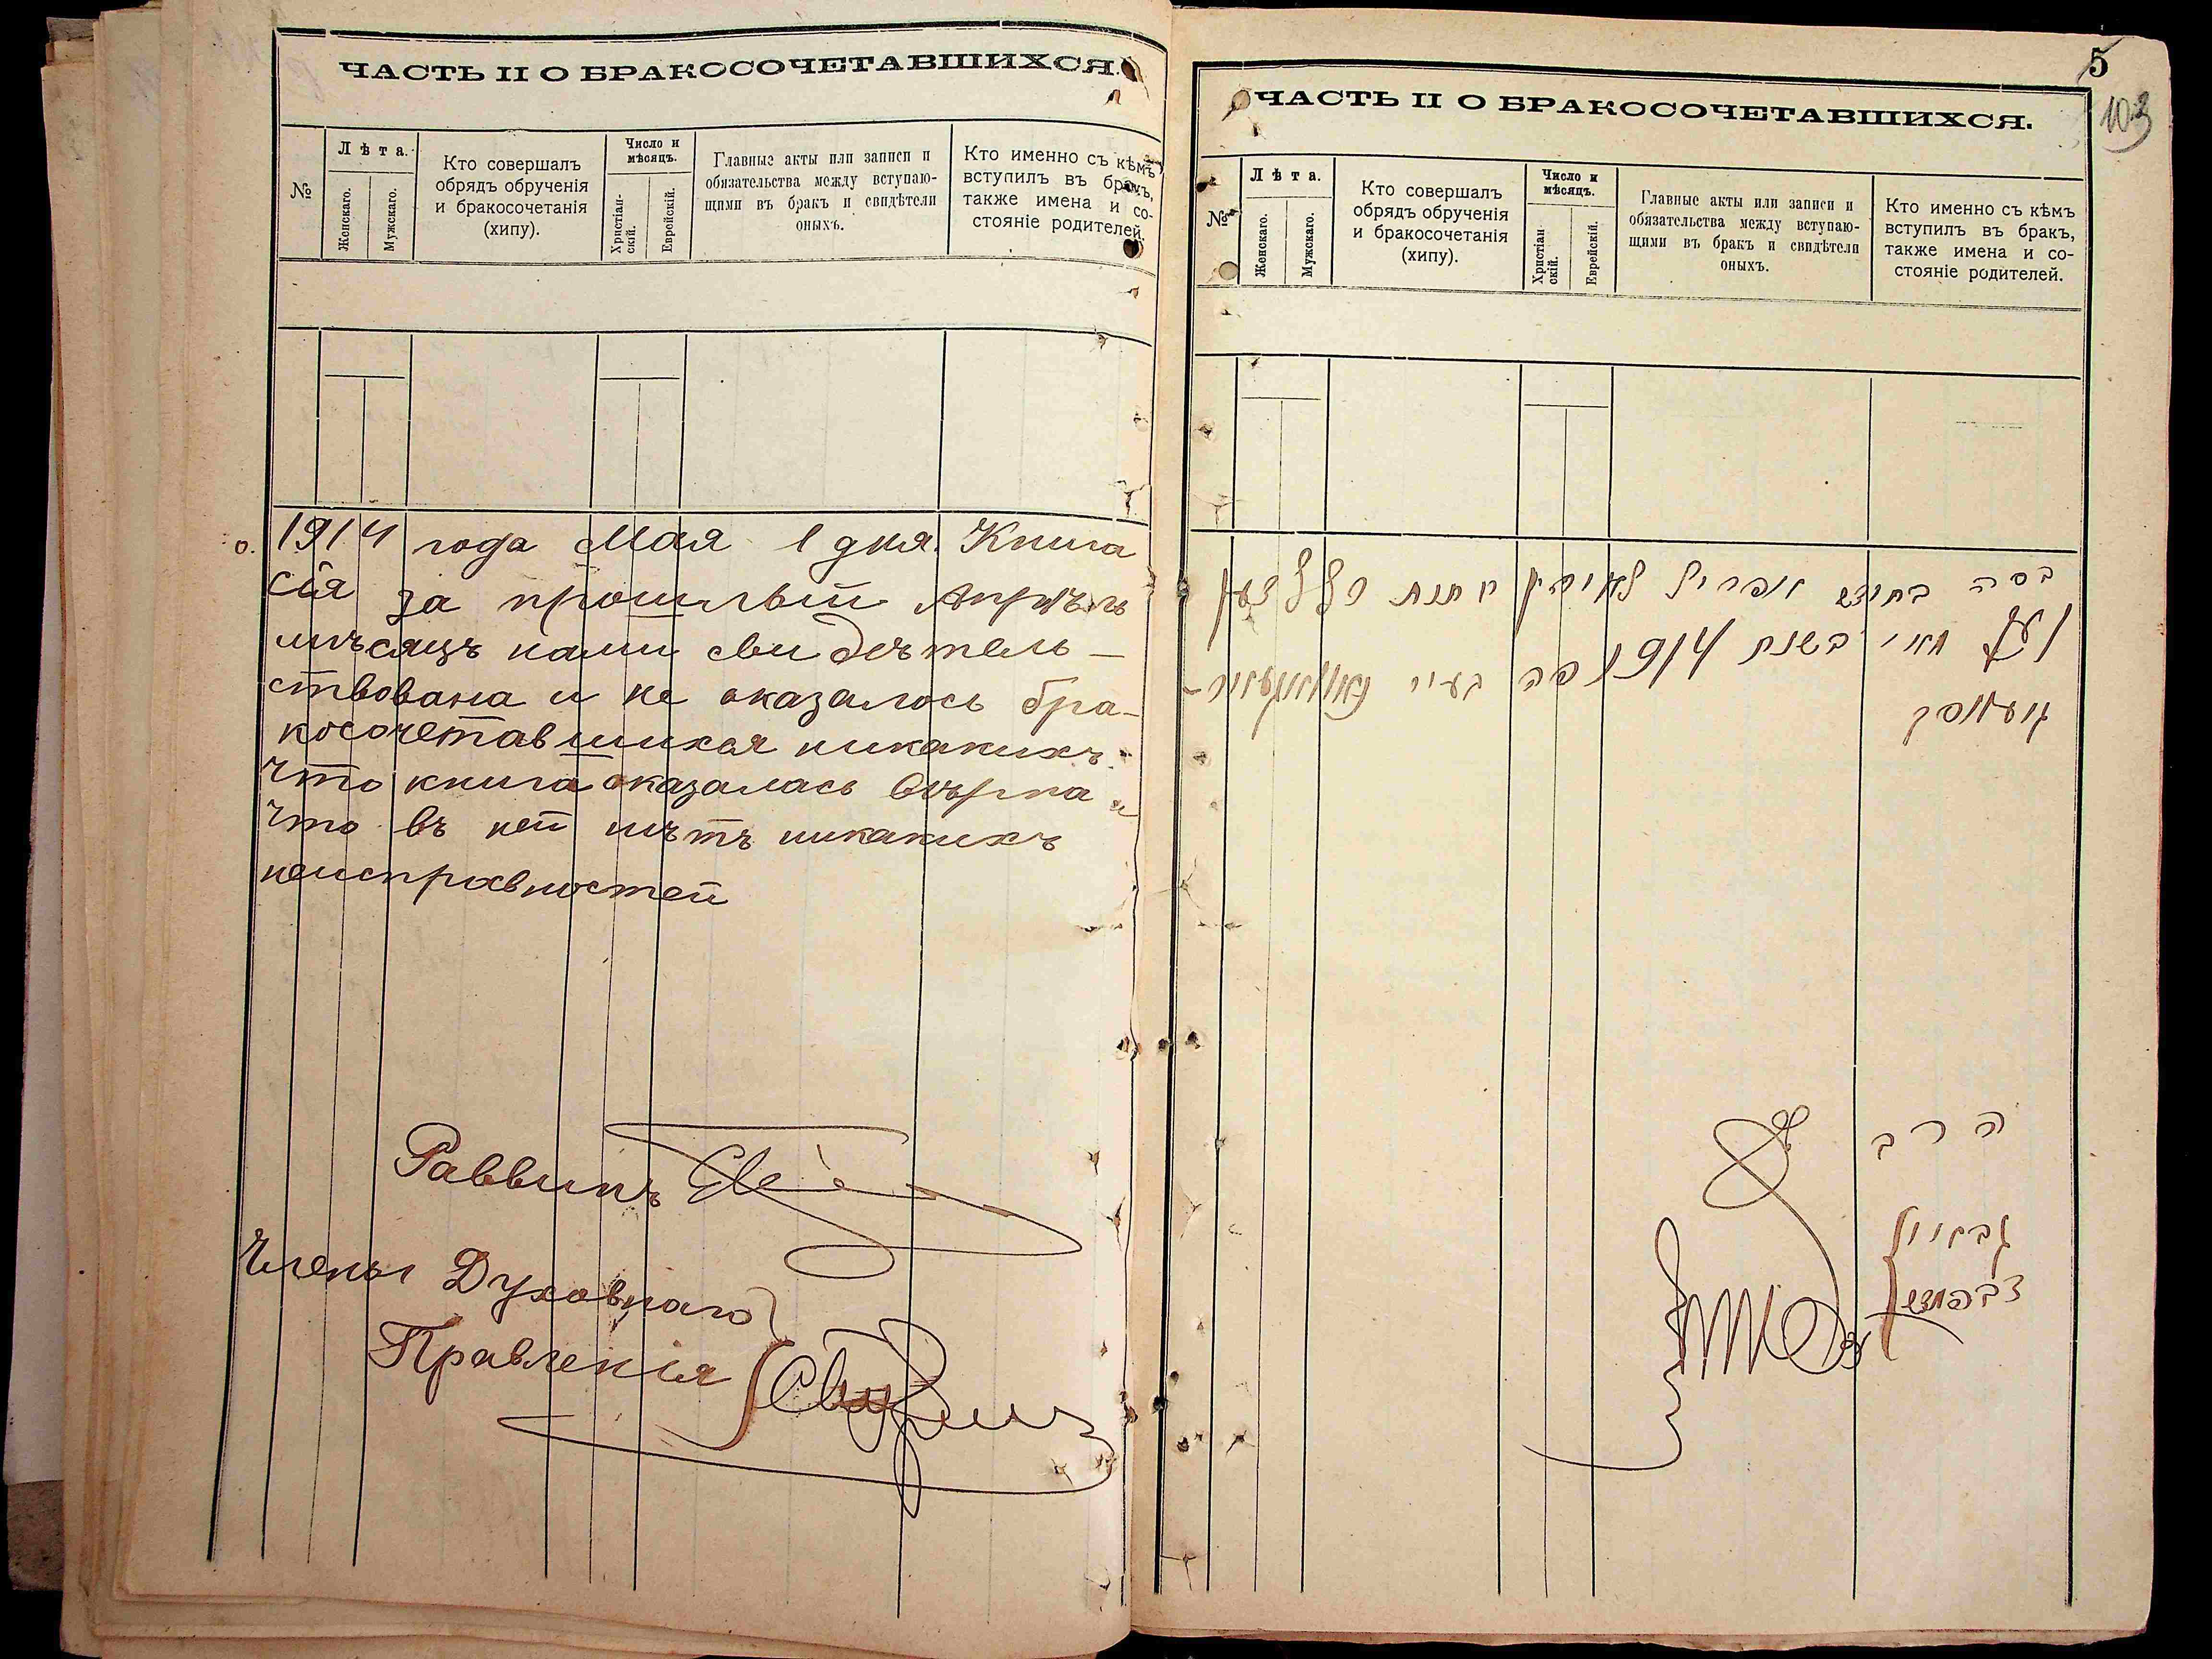 ЧАСТЬ II О БРАКОСОЧЕТАВШИХСЯ.
№
Лѣта.
Женскаго.
Мужскаго.
Кто совершалъ
обрядъ обрученія
и бракосочетанія
(хипу).
Число и
мѣсяцъ.
Христіан-
скій.
Еврейскій.
Главные акты или записи и
обязательства между вступаю-
щими въ бракъ и свидѣтели
оныхъ.
Кто именно съ кѣмъ
вступилъ въ бракъ,
также имена и со-
стояніе родителей.
1914 года Мая 1 дня. Книга
сія за прошлый Апрѣль
мѣсяцъ нами свидѣтель-
ствована и не оказалось бра-
косочетавшихся никакихъ
что книга оказалась вѣрна и
что въ ней нѣтъ никакихъ
неисправностей
Раввинъ
Члены Духовнаго
Правленія
5
103
ЧАСТЬ II О БРАКОСОЧЕТАВШИХСЯ.
№
Лѣта.
Женскаго.
Мужскаго.
Кто совершалъ
обрядъ обрученія
и бракосочетанія
(хипу).
Число и
мѣсяцъ.
Христіан-
скій.
Еврейскій.
Главные акты или записи и
обязательства между вступаю-
щими въ бракъ и свидѣтели
оныхъ.
Кто именно съ кѣмъ
вступилъ въ бракъ,
также имена и со-
стояніе родителей.
בחודש אפריל
מאי בשנת 1914 פה
הרב